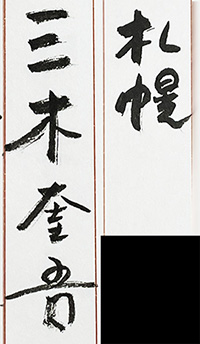 札幌
三木奎吾